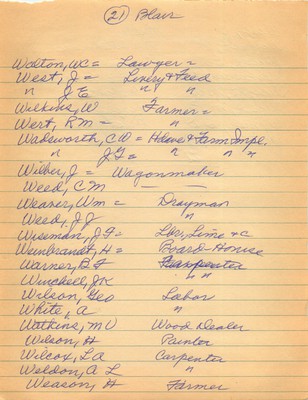 (21) Blair
Walton, WC = Lawyer =
West, J = Livery & Feed
" J E " "
Wilkins, W Farmer =
Wert, R M = "
Wadsworth, C W = Hdwe & Farm Impl.
" J G = " " "
Wilber, J = Wagonmaker
Weed, C M — —
Weaver, Wm = Drayman
Weed, J J "
Wiseman, J G = Lbr, Lime & c
Wunbrandt, H = Board-House
Warner, B F Carpenter
Winchell, J K "
Wilson, Geo Labor
White, A "
Watkins, M V Wood Dealer
Wilson, H Painter
Wilcox, L A Carpenter
Weldon, A L "
Weason, H Farmer